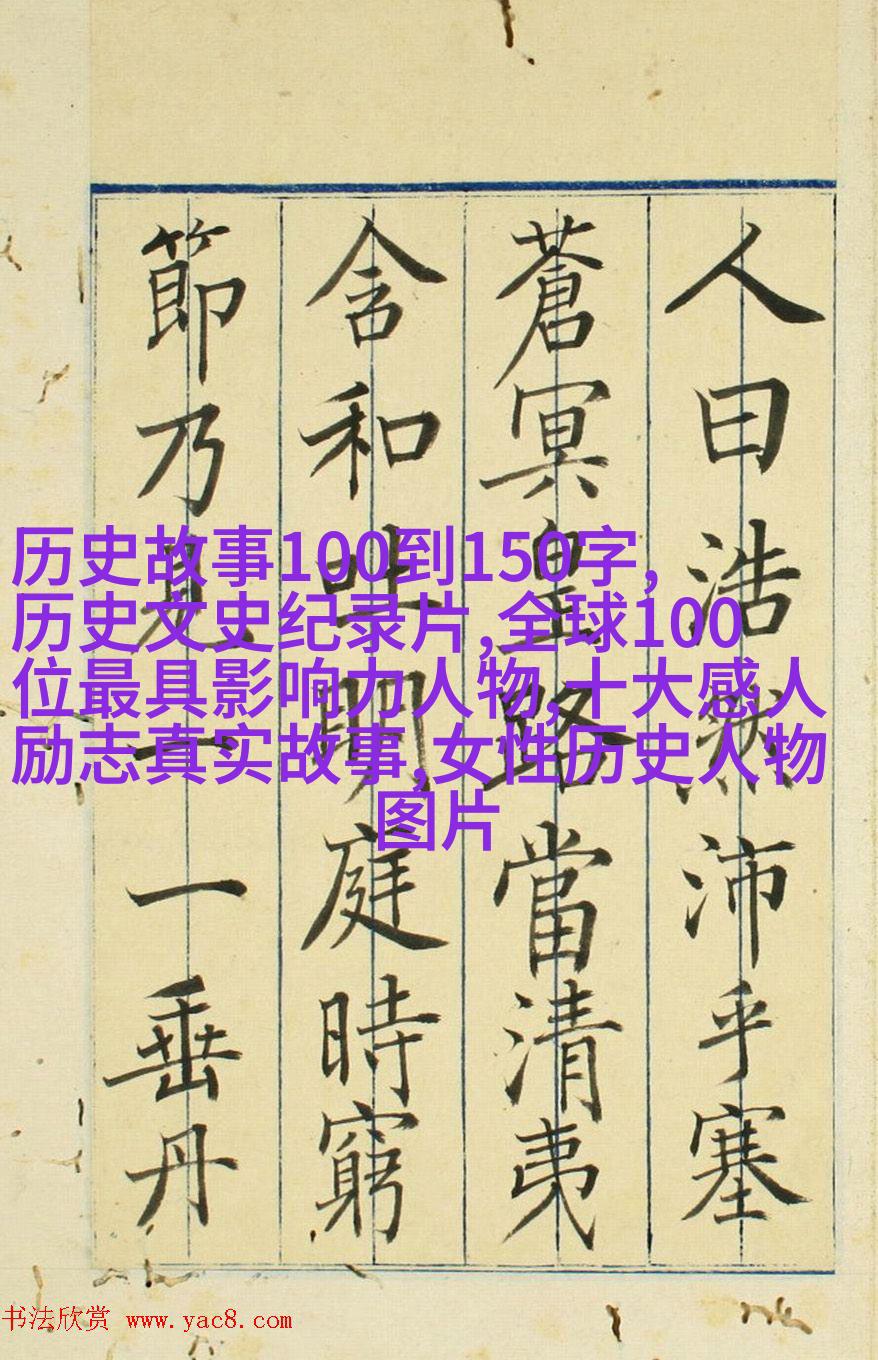 人曰浩然沛乎塞
蒼冥皇路當清夷
含和吐明庭時窮
節乃見一一垂丹
历史故事100到150字,
历史文史纪录片,全球100
位最具影响力人物,十大感人
励志真实故事,女性历史人物
图片
书法欣赏 www.yac8.com